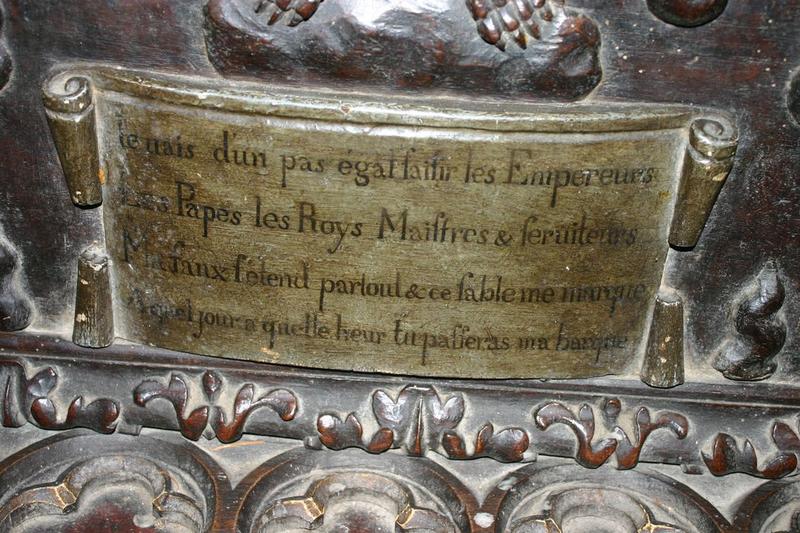 Ie uais d'un pas égal saisir les Empereurs
Les Papes les Roys Maistres & seruiteurs
Ma faux s'étend partout & ce sable me marque
A quel jour a quelle heur tu passeras ma barque